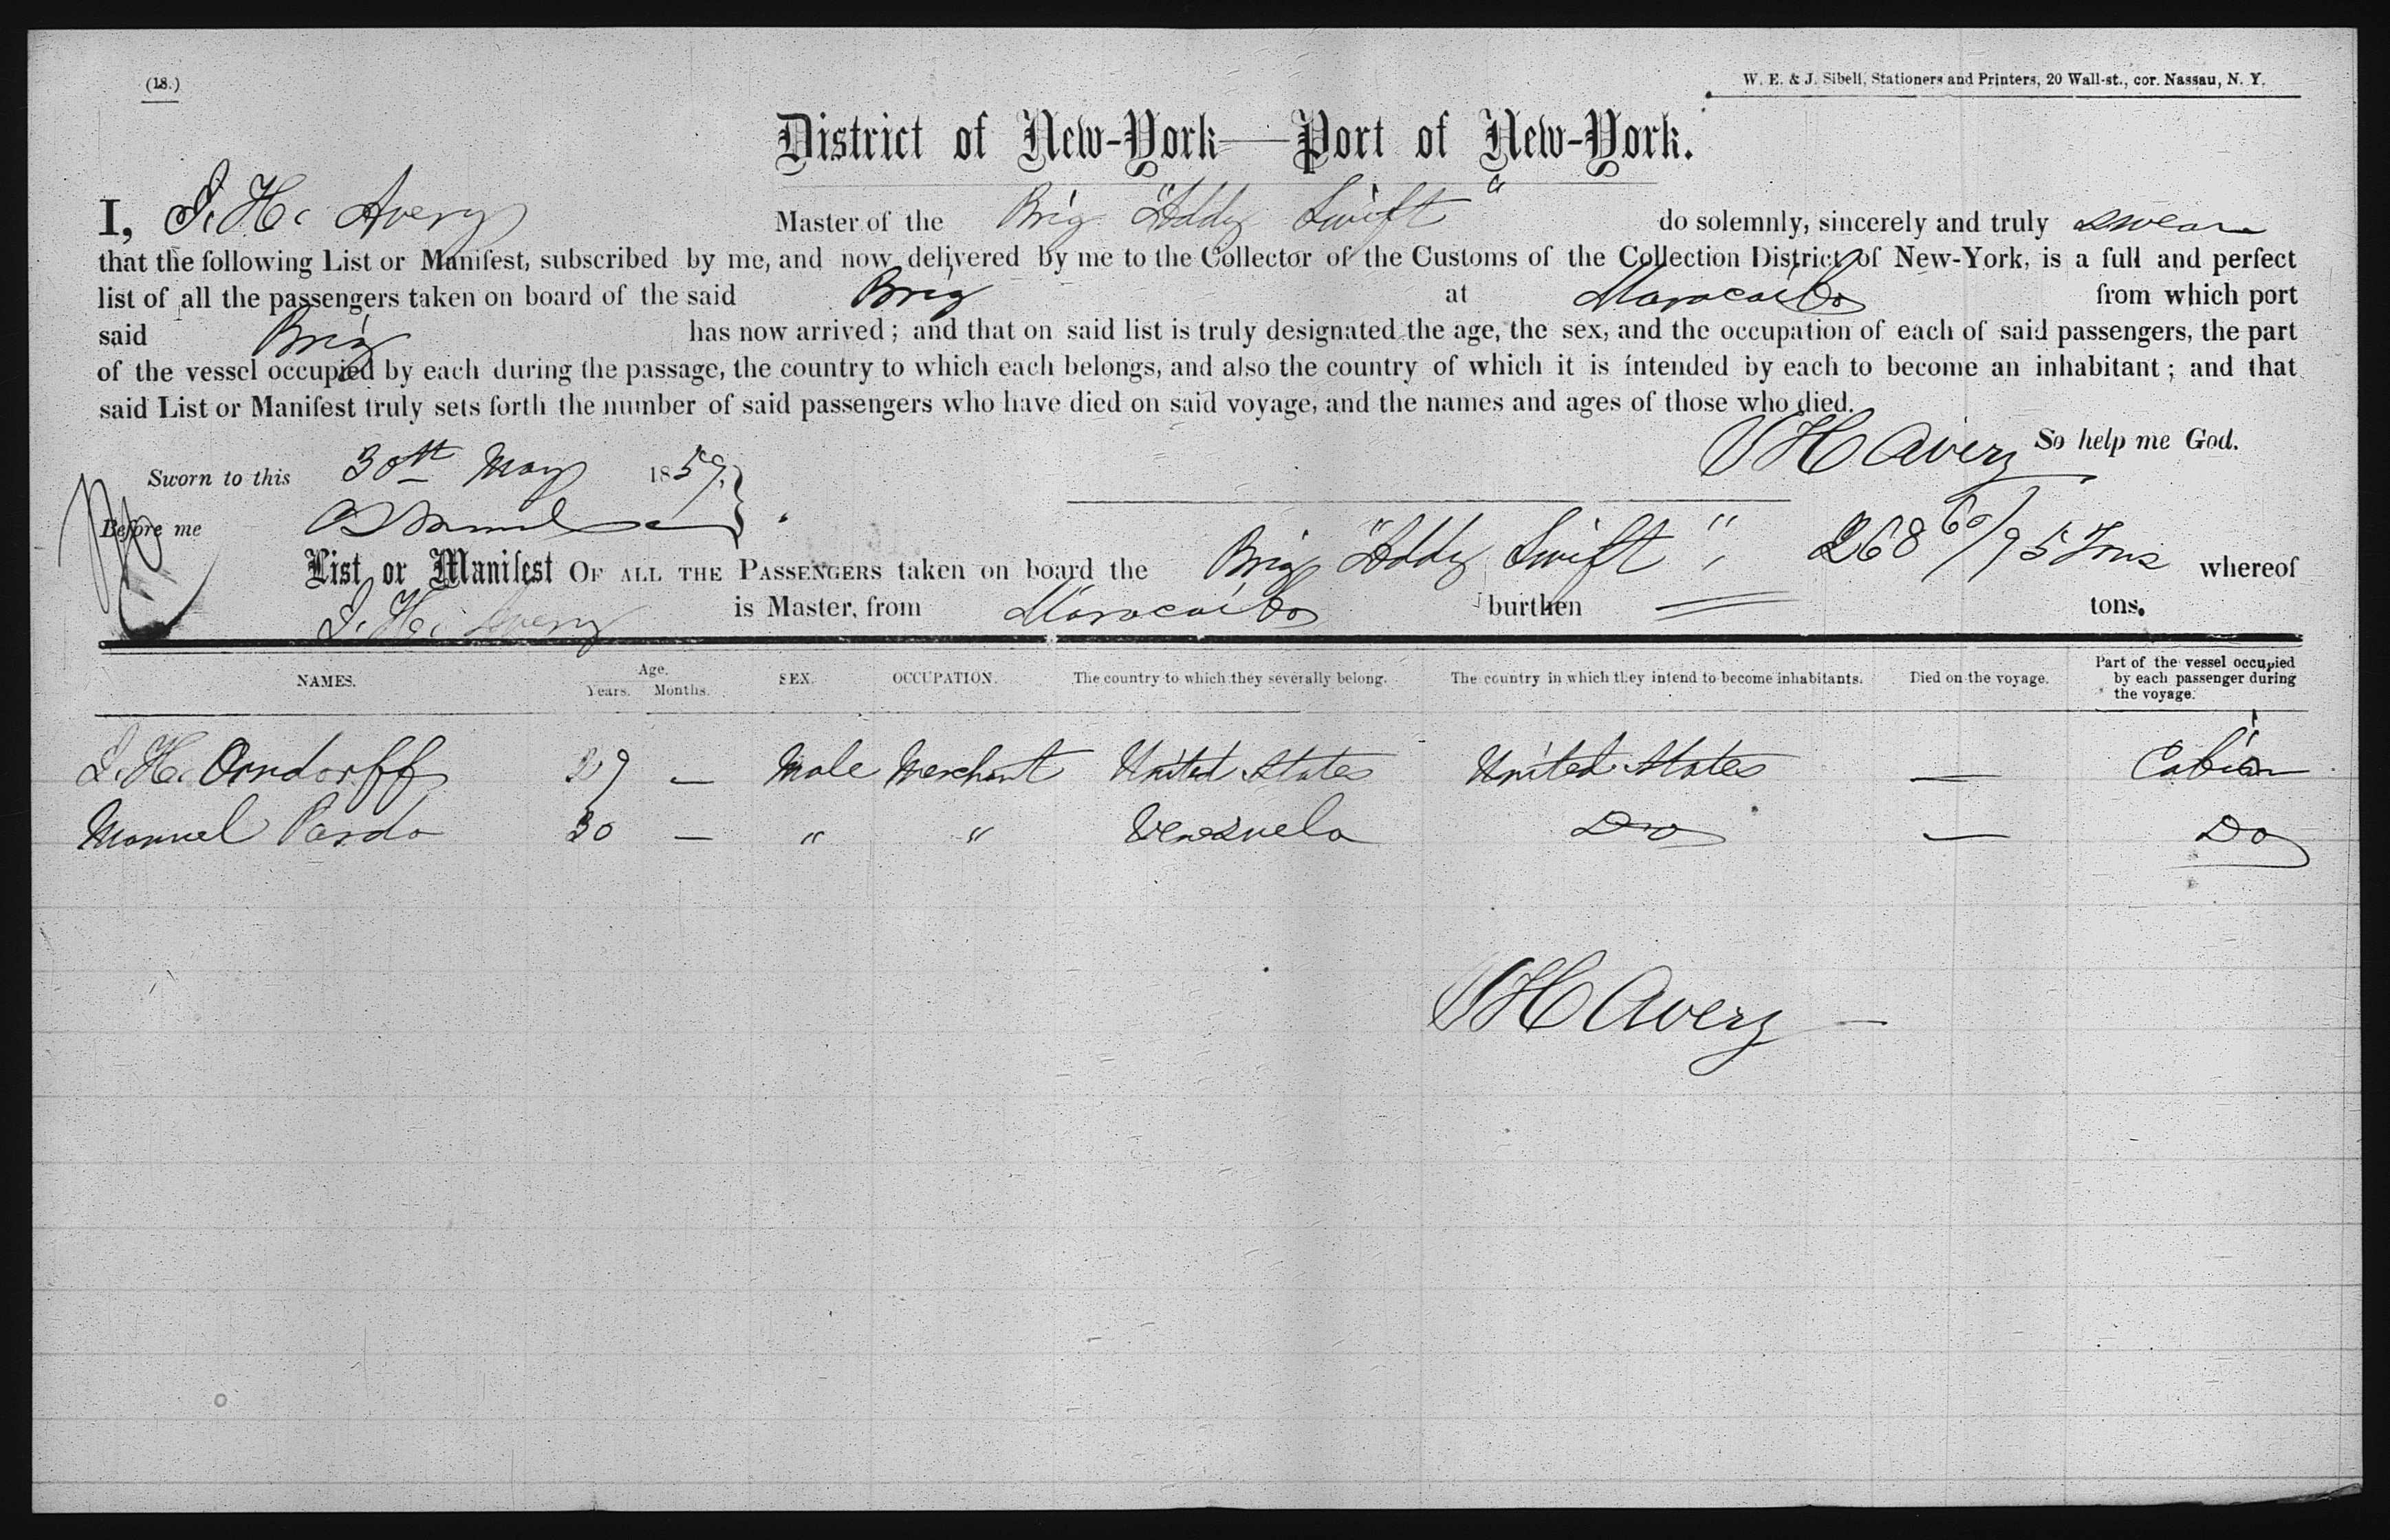 (18.)
W. E. & J. Sibell, Stationers and Printers, 20 Wall-st., cor. Nassau, N. Y.
District of New-York—Port of New-York.
I, J. H. Avery Master of the Brig "Addy Swift" do solemnly, sincerely and truly swear
that the following List or Manifest, subscribed by me, and now delivered by me to the Collector of the Customs of the Collection District of New-York, is a full and perfect
list of all the passengers taken on board of the said Brig at Maracaibo from which port
said Brig has now arrived; and that on said list is truly designated the age, the sex, and the occupation of each of said passengers, the part
of the vessel occupied by each during the passage, the country to which each belongs, and also the country of which it is intended by each to become an inhabitant; and that
said List or Manifest truly sets forth the number of said passengers who have died on said voyage, and the names and ages of those who died.
J H Avery So help me God.
Sworn to this 30th May 1859
Before me
List or Manifest OF ALL THE PASSENGERS taken on board the Brig "Addy Swift", 268 60/95 Tons whereof
J. H. Avery is Master, from Maracaibo burthen tons.
NAMES. Age. Years. Months. SEX. OCCUPATION. The country to which they severally belong. The country in which they intend to become inhabitants. Died on the voyage. Part of the vessel occupied by each passenger during the voyage.
J. H. Orndorff 29 — Male Merchant United States United States — Cabin
Manuel Pardo 30 — " " Venezuela Do — Do
J H Avery